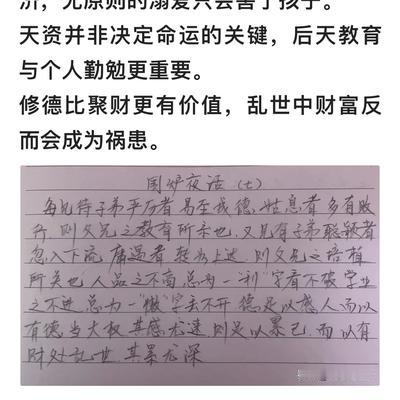 济，无原则的溺爱只会害了孩子。
天资并非决定命运的关键，后天教育
与个人勤勉更重要。
修德比聚财更有价值，乱世中财富反
而会成为祸患。
围炉夜话（七）
每见待子弟严厉者易至成德,姑息者多有败
行,则父兄之教育所系也,又见有子弟聪颖者
忽入下流,庸愚者转为上达,则父兄之培植
所关也,人品之不高,总为一"利"字看不破,学业
之不进,总为一"懒"字丢不开,德足以感人而以
有德当大权,其感尤速,财足以累己,而以有
财处乱世,其累尤深